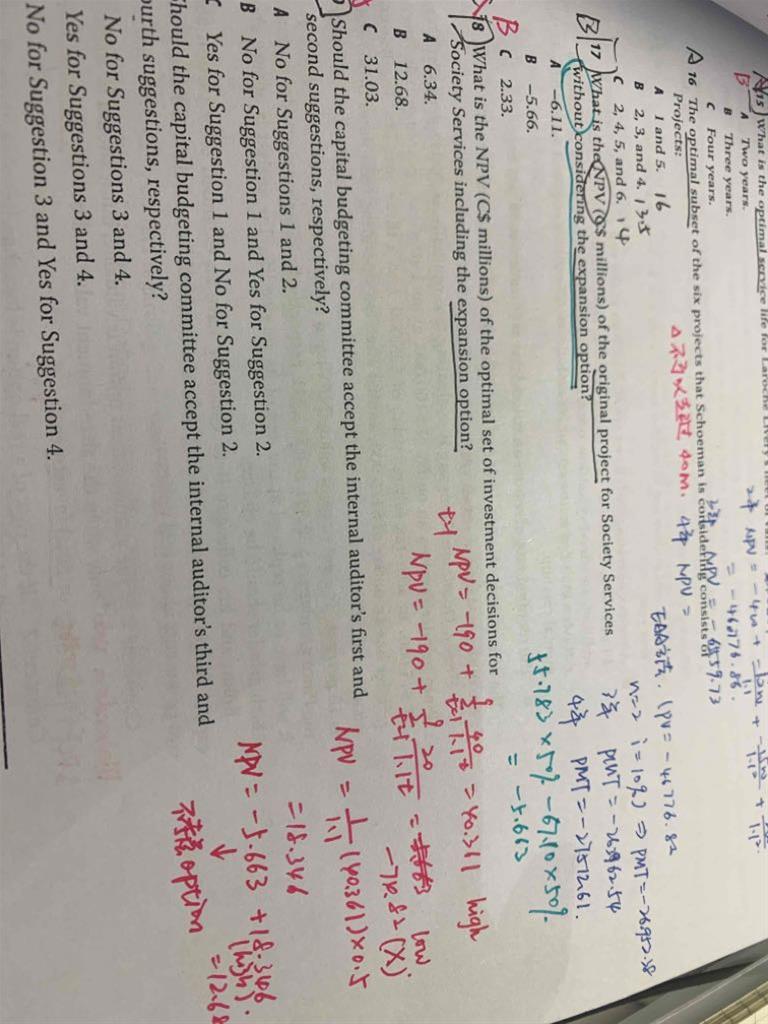 15 What is the optimal service life for Laroche Livery's fleet of
A Two years.
B Three years.
C Four years.
16 The optimal subset of the six projects that Schoeman is considering consists of
Projects:
A 1 and 5. 16
B 2, 3, and 4. 13.5
C 2, 4, 5, and 6. 14
B 17 What is the NPV (C$ millions) of the original project for Society Services
without considering the expansion option?
A −6.11.
B −5.66.
C 2.33.
B 18 What is the NPV (C$ millions) of the optimal set of investment decisions for
Society Services including the expansion option?
A 6.34.
B 12.68.
C 31.03.
Should the capital budgeting committee accept the internal auditor's first and
second suggestions, respectively?
A No for Suggestions 1 and 2.
B No for Suggestion 1 and Yes for Suggestion 2.
C Yes for Suggestion 1 and No for Suggestion 2.
Should the capital budgeting committee accept the internal auditor's third and
fourth suggestions, respectively?
No for Suggestions 3 and 4.
Yes for Suggestions 3 and 4.
No for Suggestion 3 and Yes for Suggestion 4.
= -46776.86.
NPV = -6559.73
40M. 4年 NPV =
(PV = -46776.82
n=2 i=10%) ⇒ PMT=-26952.38
3年 PMT=-26962.54
4年 PMT=-27512.61.
55.783 × 50% -67.10×50%
= -5.663
t=1 NPV = -190 + = 40.361 high
NPV = -190 + = low
-74.82 (X)
NPV = (40.361)×0.5
=18.346
NPV = -5.663 +18.346
(high).
=12.68
不考虑 option